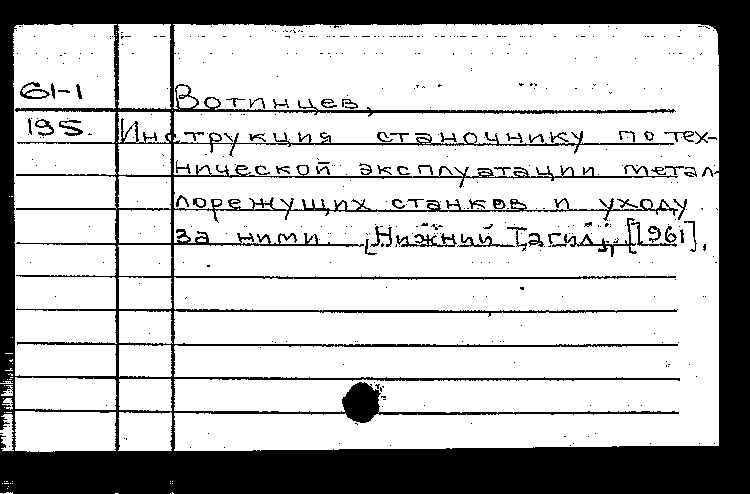 61-1 Вотинцев,
195. Инструкция станочнику по тех-
нической эксплуатации метал-
лорежущих станков и уходу
за ними. [Нижний Тагил], [1961].